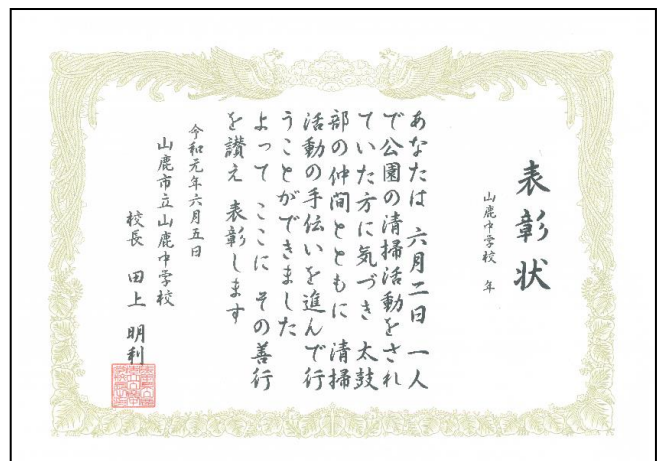 表彰状
山鹿中学校 年
あなたは 六月二日 一人
で公園の清掃活動をされ
ていた方に気づき 太鼓
部の仲間とともに 清掃
活動の手伝いを進んで行
うことができました
よって ここに その善行
を讃え 表彰します
令和元年六月五日
山鹿市立山鹿中学校
校長 田上 明利